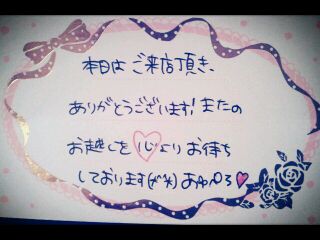 本日は ご来店頂き、
ありがとうございます! またの
お越しを 心より お待ち
しております(*´˘`*) あゆみ♥